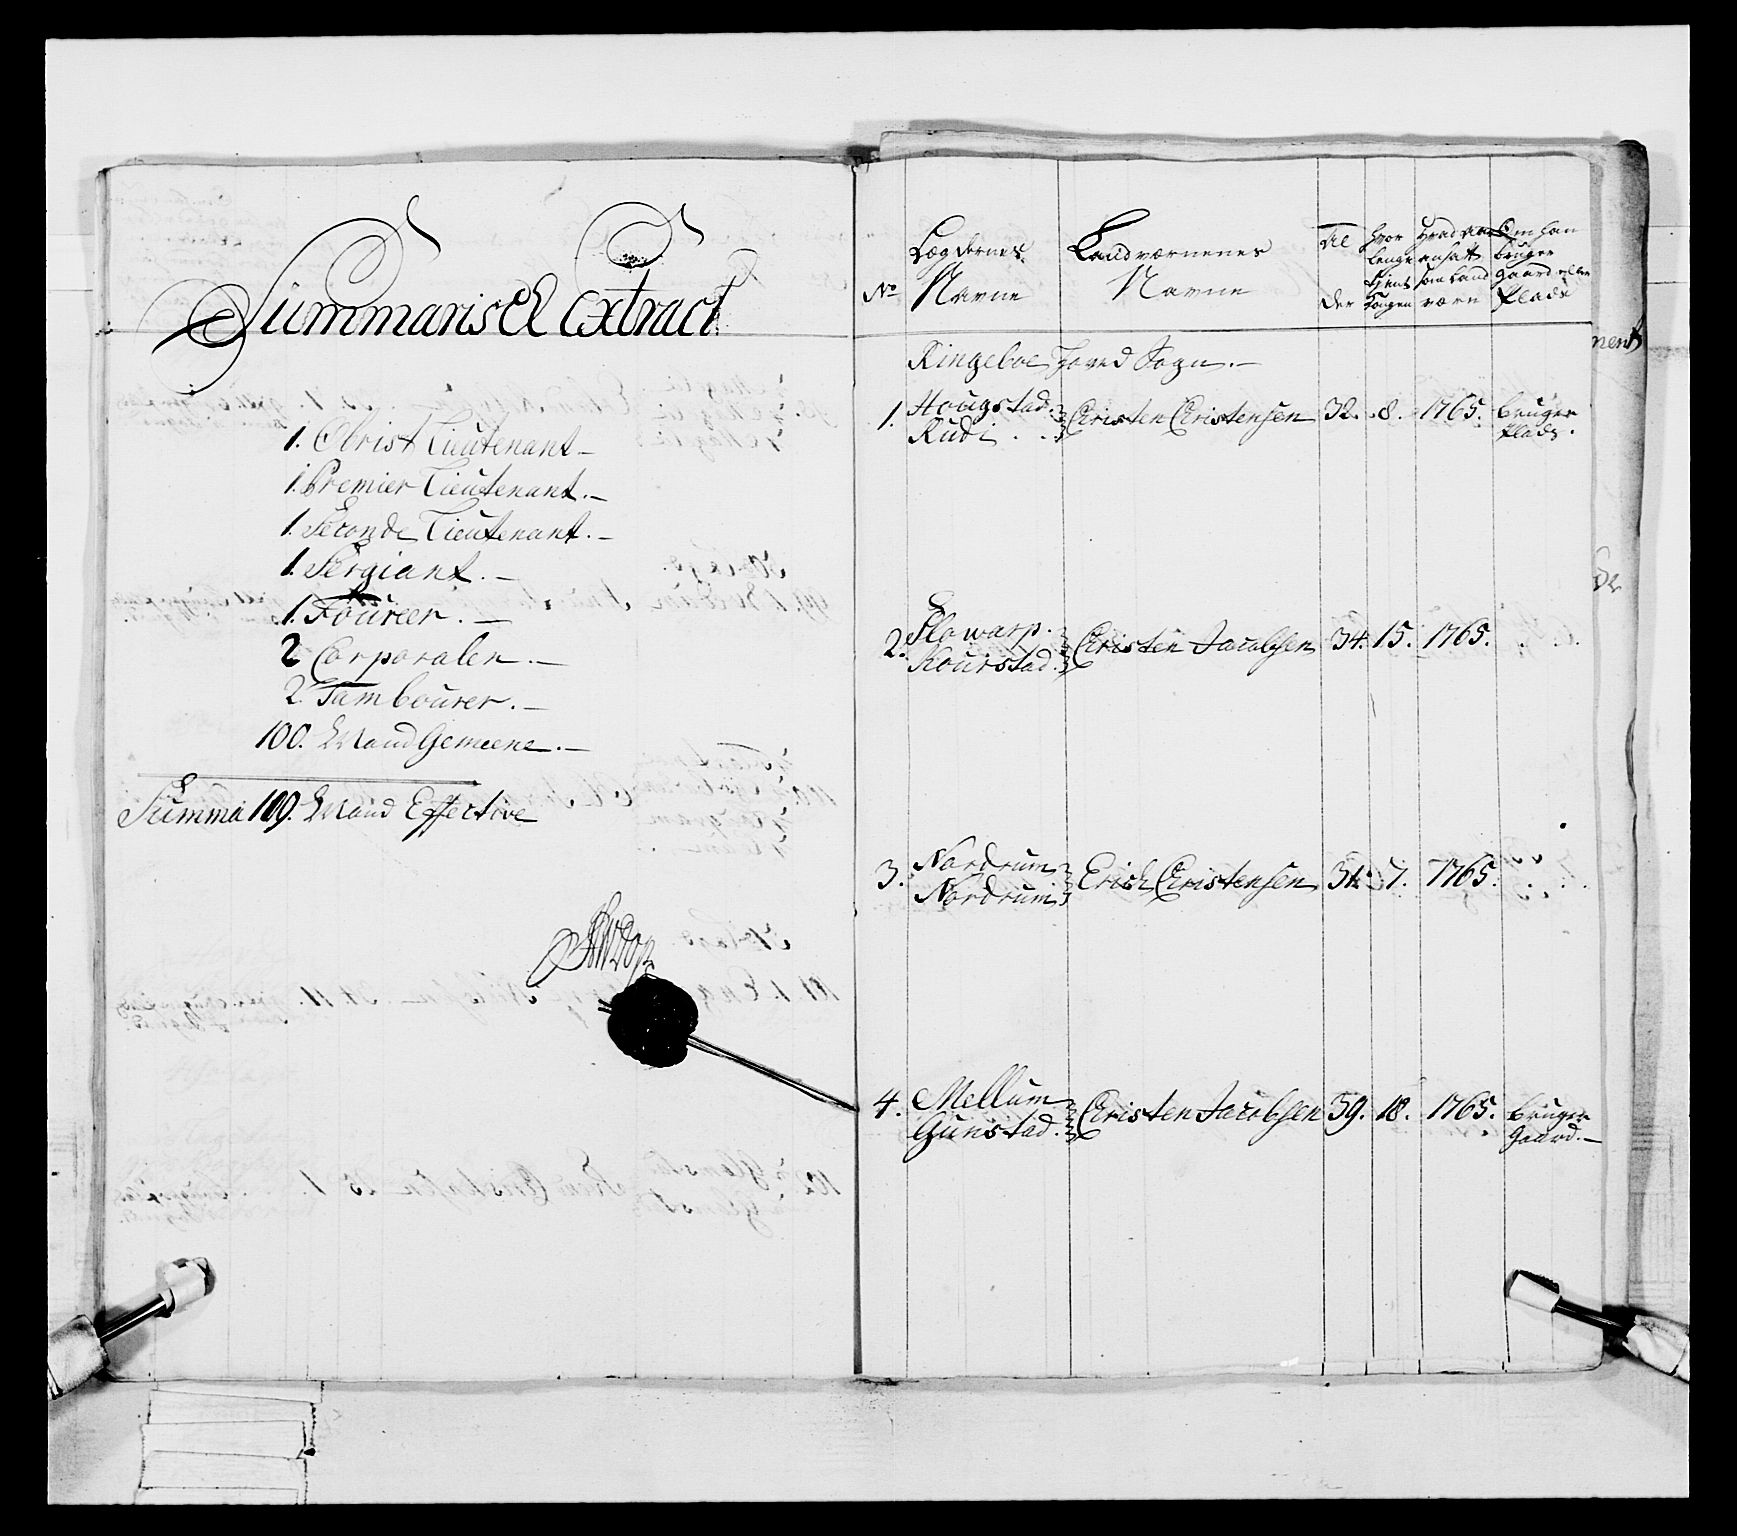 Summarisch Extract
1. Obrist Lieutenant
1. Premier Lieutenant.
1. Seconde Lieutenant.
1. Sergiant.
1. Foureer.
2 Corporaler.
2. Tambourer.
100. Mand Gemeene.
Summa 109. Mand Effective
No
Lægdernes
Navne
Landværnenes
Navne
Al
der
Hvor
lenge
tient
Kongen
Hvad aar
ansatt
som Land
værn
Om han
bruger
gaard eller
Plads
Ringeboe Hoved Sogn.
1. Hougstad. Rudi. Christen Christensen 32. 8. 1765. bruger plads.
2. Flowarp. Kourstad. Christen Jacobsen 34. 15. 1765.
3. Nordrum Nordrum Erich Christensen 34. 7. 1765.
4. Mellum Gunstad. Christen Jacobsen 39. 18. 1765. bruger gaard.
ment